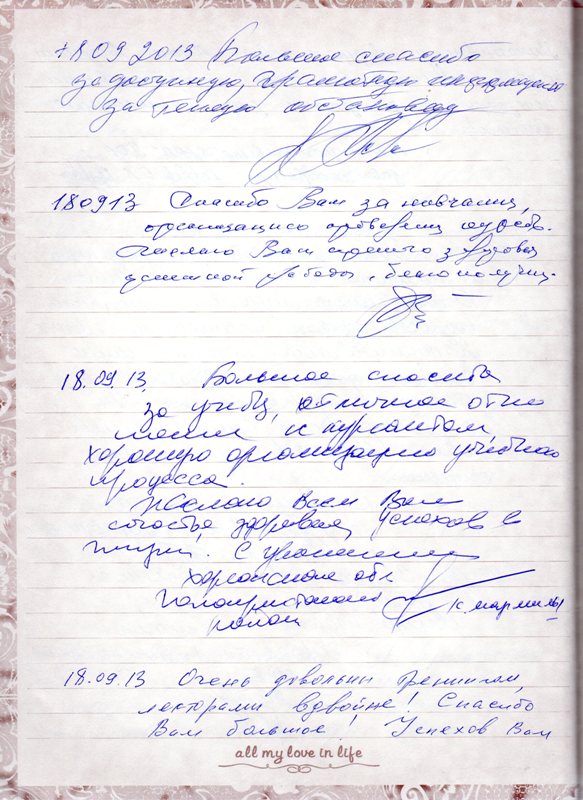 18 09 2013 Большое спасибо
за доступную, грамотную информацию
за теплую обстановку
18 09 13 Спасибо Вам за
организацию проведения
Желаю Вам
успешной работы, благополучия.
18.09.13. Большое спасибо
за учебу, отличное отно
шение к курсантам,
хорошую организацию учебного
процесса.
Желаю всем Вам
счастья, здоровья, успехов в
жизни. С уважением
Херсонская обл
Голопристанский
район
18.09.13 Очень довольны тренингом,
лекторами вдвойне! Спасибо
Вам большое! Успехов Вам
all my love in life